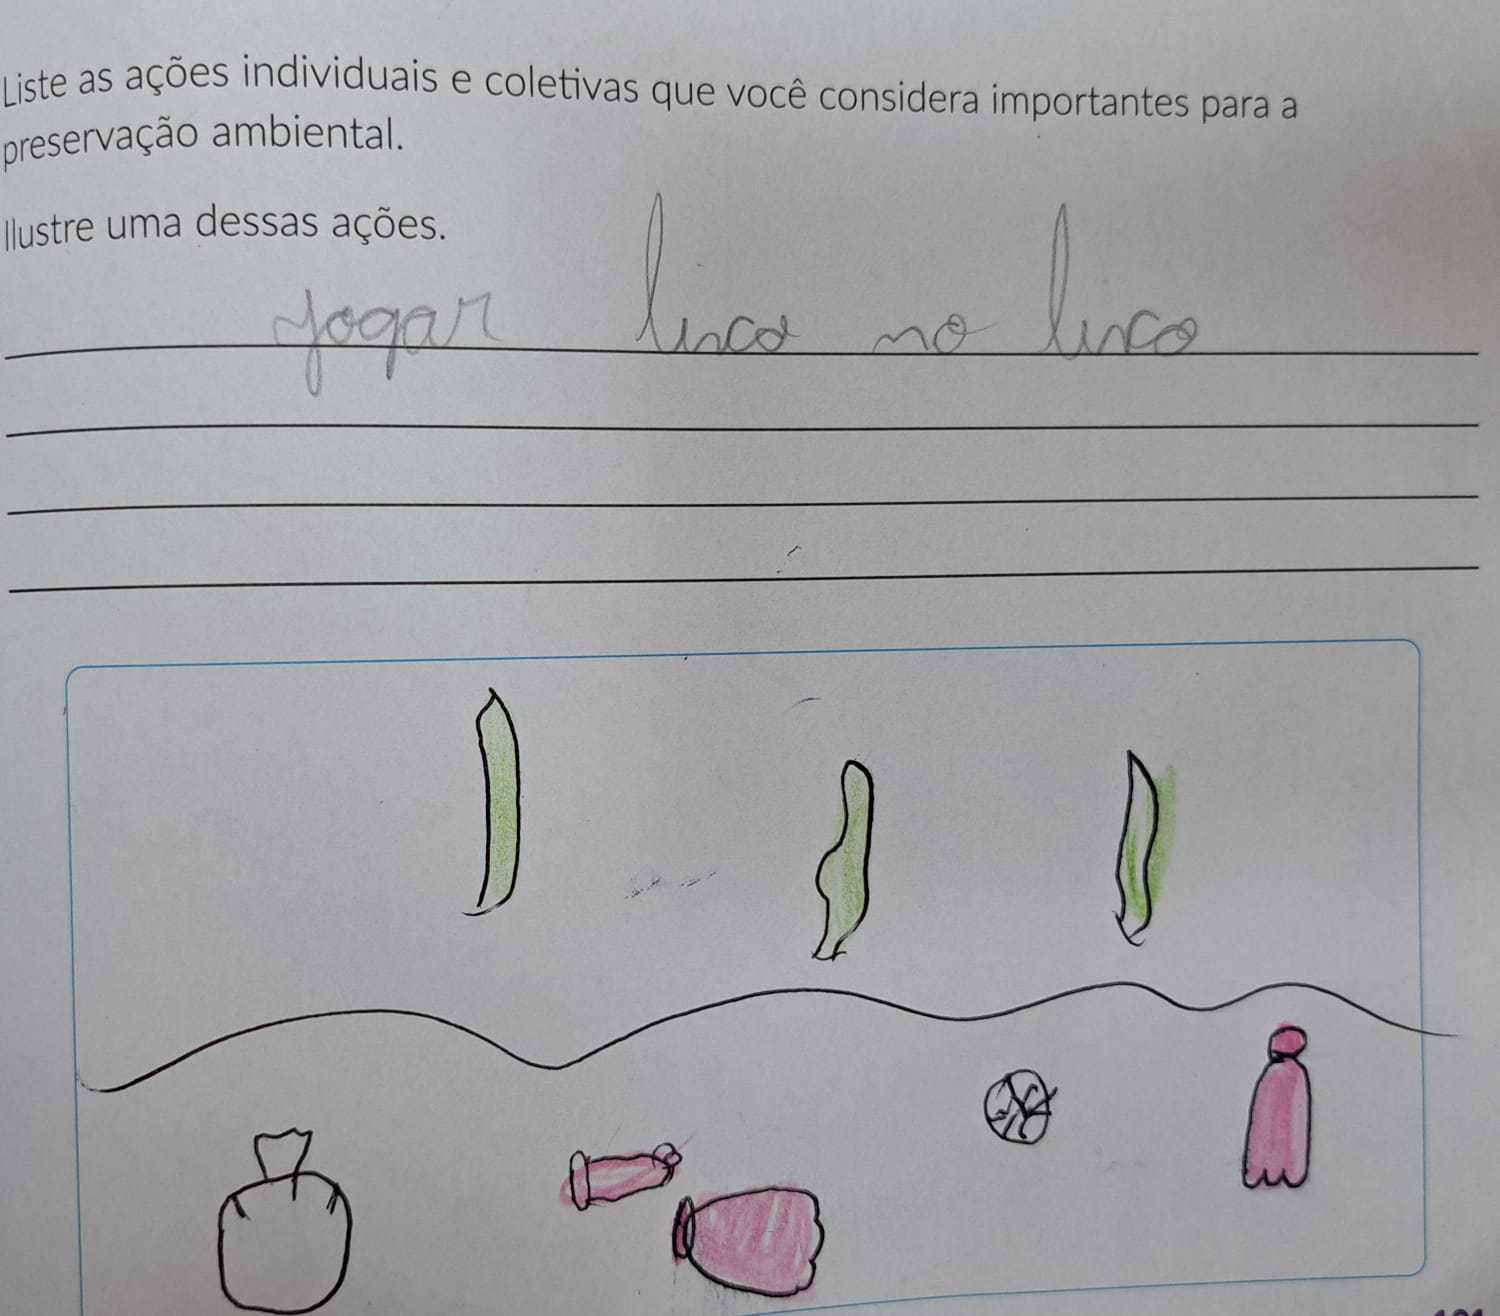 Liste as ações individuais e coletivas que você considera importantes para a
preservação ambiental.
Ilustre uma dessas ações.
jogar lixo no lixo